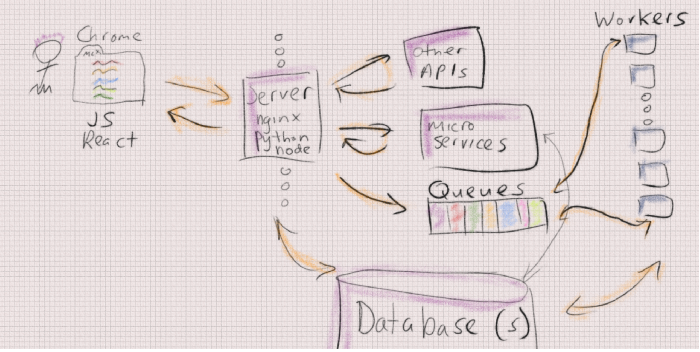 Chrome
JS
React
Server
nginx
Python
node
Other
APIs
Micro
Services
Queues
Workers
Database (s)